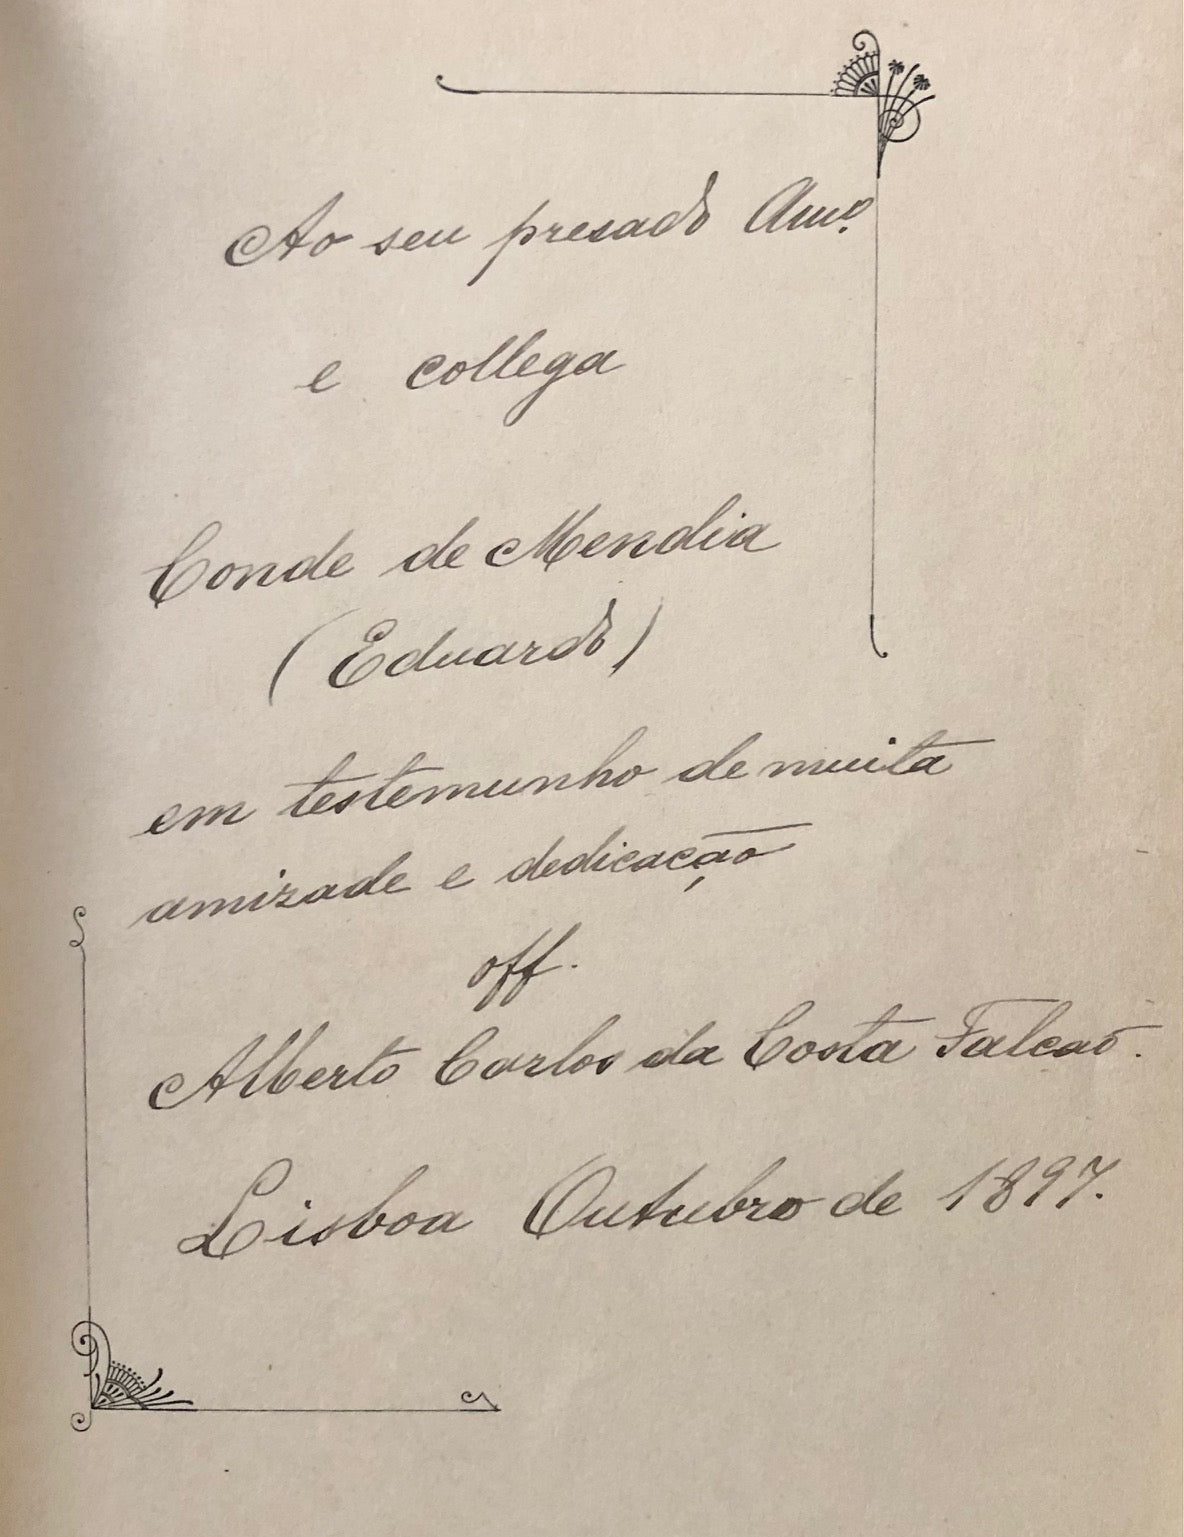 Ao seu presado Amº.
e collega
Conde de Mendia
(Eduardo)
em testemunho de muita
amizade e dedicação
off.
Alberto Carlos da Costa Falcaõ.
Lisboa Outubro de 1897.